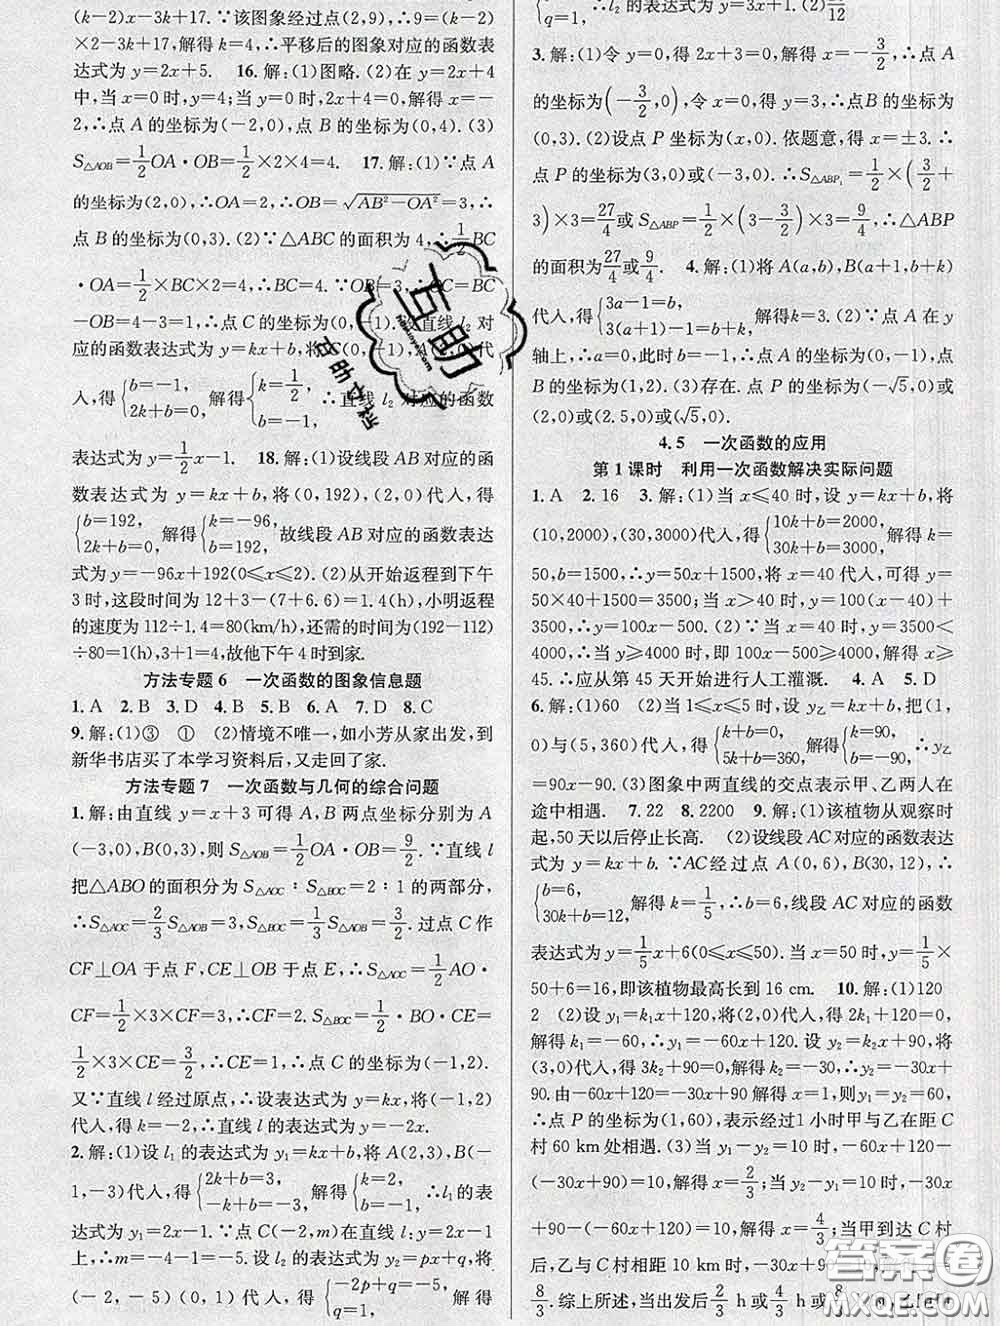 (k-2)x-3k+17. ∵该图象经过点(2,9),∴9=(k-2)
×2-3k+17,解得 k=4,∴平移后的图象对应的函数表
达式为 y=2x+5. 16. 解:(1)图略. (2)在 y=2x+4
中,当 x=0 时,y=4;当 y=0 时,2x+4=0,解得 x=-
2,∴点 A 的坐标为(-2,0),点 B 的坐标为(0,4). (3)
S△AOB=1/2OA·OB=1/2×2×4=4. 17. 解:(1)∵点 A
的坐标为(2,0),∴OA=2,∴OB=√(AB²-OA²)=3,∴
点 B 的坐标为(0,3). (2)∵△ABC 的面积为 4,∴1/2BC
·OA=1/2×BC×2=4,∴BC=4. ∵OB=3,∴OC=BC
-OB=4-3=1,∴点 C 的坐标为(0,-1). 设直线 l₂ 对
应的函数表达式为 y=kx+b,将 C(0,-1), 代
人,得{b=-1, 2k+b=0, 解得{k=1/2, b=-1. ∴直线 l₂ 对应的函数
表达式为 y=1/2x-1. 18. 解:(1)设线段 AB 对应的函
数表达式为 y=kx+b,将(0,192),(2,0)代人,得
{b=192, 2k+b=0, 解得{k=-96, b=192. 故线段 AB 对应的函数表达
式为 y=-96x+192(0⩽x⩽2). (2)从开始返程到下午
3 时,这段时间为 12+3-(7+6.6)=1.4(h),小明返程
的速度为 112÷1.4=80(km/h),还需的时间为(192-112)
÷80=1(h),3+1=4,故他下午 4 时到家.
方法专题 6 一次函数的图象信息题
1. A 2. B 3. D 4. B 5. B 6. A 7. D 8. C
9. 解:(1)③ ① (2)情境不唯一,如小芳从家出发,到
新华书店买了本学习资料后,又走回了家.
方法专题 7 一次函数与几何的综合问题
1. 解:由直线 y=x+3 可得 A,B 两点坐标分别为 A
(-3,0),B(0,3),则 S△AOB=1/2OA·OB=9/2. ∵直线 l
把△ABO 的面积分为 S△AOC∶S△BOC=2∶1 的两部分,
∴S△AOC=2/3S△AOB=3,S△BOC=1/3S△AOB=3/2. 过点 C 作
CF⊥OA 于点 F,CE⊥OB 于点 E,∴S△AOC=1/2AO·
CF=1/2×3×CF=3,∴CF=2. S△BOC=1/2·BO·CE=
1/2×3×CE=3/2,∴CE=1,∴点 C 的坐标为(-1,2).
又∵直线 l 经过原点,∴设表达式为 y=kx,将(-1,2)
代人,得 k=-2,∴直线 l 的表达式为 y=-2x.
2. 解:(1)设 l₁ 的表达式为 y₁=kx+b,将 A(2,3),B(-
1,-3)代人,得{2k+b=3, -k+b=-3, 解得{k=2, b=-1. ∴l₁ 的表
达式为 y=2x-1. ∵点 C(-2,m)在直线 l:y=2x-1
上,∴m=-4-1=-5. 设 l₂ 的表达式为 y₂=px+q,将
(-2,-5)(0,1)代人,得{-2p+q=-5, q=1, 解得
q=1, ∴l₂ 的表达式为 y=3x+1. (2) /12
3. 解:(1)令 y=0,得 0=2x+3,解得 x=-3/2,∴点 A
的坐标为(-3/2,0),令 x=0,得 y=3,∴点 B 的坐标为
(0,3). (2)设点 P 坐标为(x,0). 依题意,得 x=±3. ∴
点 P 的坐标为(3,0)或(-3,0). ∴S△ABP₁=1/2×(3/2+
3)×3=27/4或 S△ABP=1/2×(3-3/2)×3=9/4,∴△ABP
的面积为27/4或9/4. 4. 解:(1)将 A(a,b),B(a+1,b+k)
代人,得{3a-1=b, 3(a+1)-1=b+k, 解得 k=3. (2)∵点 A 在 y
轴上,∴a=0,此时 b=-1,∴点 A 的坐标为(0,-1),点
B 的坐标为(1,2). (3)存在. 点 P 的坐标为(-√5,0)或
(2,0)或(2.5,0)或(√5,0).
4.5 一次函数的应用
第 1 课时 利用一次函数解决实际问题
1. A 2. 16 3. 解:(1)当 x⩽40 时,设 y=kx+b,将
(10,2000),(30,3000)代人,得{10k+b=2000, 30k+b=3000, 解得 k=
50,b=1500,∴y=50x+1500,将 x=40 代人,可得 y=
50×40+1500=3500;当 x>40 时,y=100(x-40)+
3500,∴y=100x-500. (2)∵当 x=40 时,y=3500<
4000,∴当 y⩾4000 时,100x-500⩾4000,解得 x⩾
45. ∴应从第 45 天开始进行人工灌溉. 4. A 5. D
6. 解:(1)60 (2)当 1⩽x⩽5 时,设 y乙=kx+b,把(1,
0),(5,360)代人,得{k+b=0, 5k+b=360, 解得{k=90, b=-90, ∴y乙
=90x-90. (3)图象中两直线的交点表示甲、乙两人在
途中相遇. 7. 22 8. 2200 9. 解:(1)该植物从观察时
起,50 天以后停止长高. (2)设线段 AC 对应的函数表达
式为 y=kx+b. ∵AC 经过点 A(0,6),B(30,12),∴
{b=6, 30k+b=12, 解得 k=1/5,b=6,∴线段 AC 对应的函数
表达式为 y=1/5x+6(0⩽x⩽50). 当 x=50 时,y=1/5×
50+6=16,即该植物最高长到 16 cm. 10. 解:(1)120
2 (2)设 y₁=k₁x+120,将(2,0)代人,得 2k₁+120=0,
解得 k₁=-60,∴y₁=-60x+120. 设 y₂=k₂x+90,将
(3,0)代人,得 3k₂+90=0,解得 k₂=-30,∴y₂=-30x+
90. 由-60x+120=-30x+90 解得 x=1,则 y₁=y₂=60,
∴点 P 的坐标为(1,60),表示经过1小时甲与乙在距 C
村 60 km处相遇. (3)当 y₁-y₂=10 时,-60x+120-
(-30x+90)=10,解得 x=2/3;当 y₂-y₁=10 时,-30x
+90-(-60x+120)=10,解得 x=4/3;当甲到达 C 村
后,乙与 C 村相距 10 km 时,-30x+90=10,解得 x=
8/3. 综上所述,当出发后2/3 h 或4/3 h 或8/3
互助
互助文档
答案卷
MXQE.COM